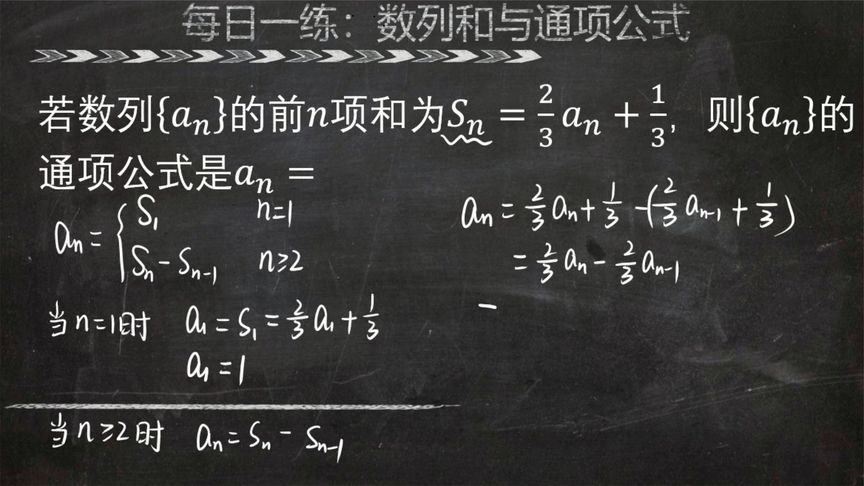 每日一练：数列和与通项公式
若数列{aₙ}的前n项和为Sₙ = 2/3 aₙ + 1/3, 则{aₙ}的
通项公式是aₙ =
aₙ = { S₁ n=1
Sₙ - Sₙ₋₁ n≥2
当n=1时 a₁ = S₁ = 2/3 a₁ + 1/3
a₁ = 1
当n≥2时 aₙ = Sₙ - Sₙ₋₁
aₙ = 2/3 aₙ + 1/3 - (2/3 aₙ₋₁ + 1/3)
= 2/3 aₙ - 2/3 aₙ₋₁